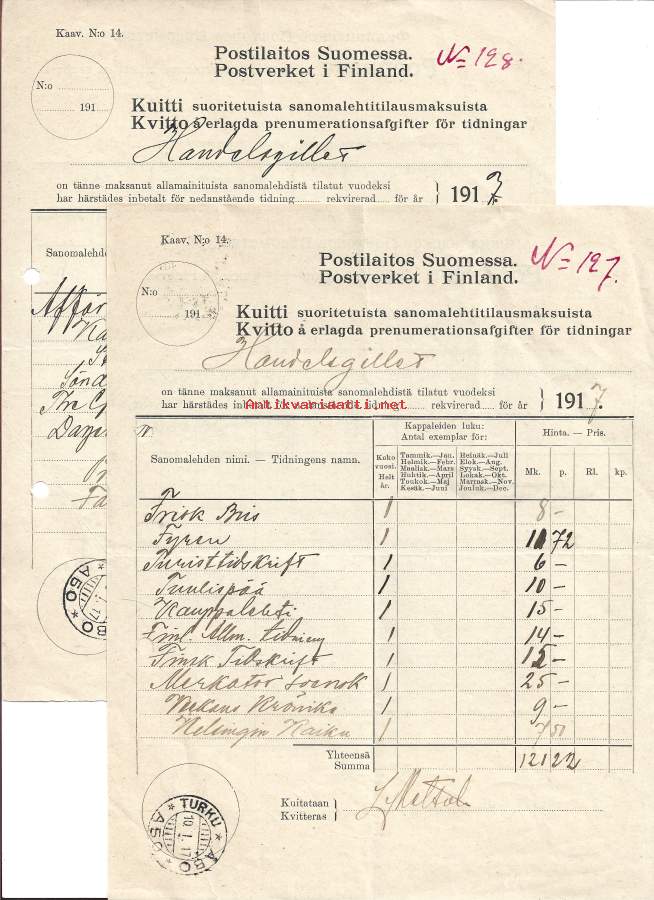 Kaav. N:o 14.
Postilaitos Suomessa.
Postverket i Finland.
№ 128.
N:o
191
Kuitti suoritetuista sanomalehtitilausmaksuista
Kvitto å erlagda prenumerationsafgifter för tidningar
Handelsgillet
on tänne maksanut allamainituista sanomalehdistä tilatut vuodeksi
har härstädes inbetalt för nedanstående tidning rekvirerad för år
1917.
Sanomalehden
ABO
АБО
Kaav. N:o 14.
Postilaitos Suomessa.
Postverket i Finland.
№ 127.
N:o
191
Kuitti suoritetuista sanomalehtitilausmaksuista
Kvitto å erlagda prenumerationsafgifter för tidningar
Handelsgillet
on tänne maksanut allamainituista sanomalehdistä tilatut vuodeksi
har härstädes inbetalt för nedanstående tidning rekvirerad för år
1917.
Antikvariaatti.net
Sanomalehden nimi. — Tidningens namn.
Kappaleiden luku:
Antal exemplar för:
Hinta. — Pris.
Koko vuosi. Helt år.
Tammik.—Jan.
Helmik.—Febr.
Maalisk.—Mars
Huhtik.—April
Toukok.—Maj
Kesäk.—Juni
Heinäk.—Juli
Elok.—Aug.
Syysk.—Sept.
Lokak.—Okt.
Marrask.—Nov.
Jouluk.—Dec.
Mk. p. Rl. kp.
Frisk Bris 1 8 —
Fyren 1 11 72
Turisttidskrift 1 6 —
Tuulispää 1 10 —
Kauppalehti 1 15 —
Finl. Allm. tidning 1 14 —
Finsk Tidskrift 1 15 —
Merkator svensk 1 25 —
Veckans Krönika 1 9 —
Helsingin Kaiku 1 7 50
Yhteensä
Summa
121 22
Kuitataan
Kvitteras
TURKU
ABO
АБО
10.I.17